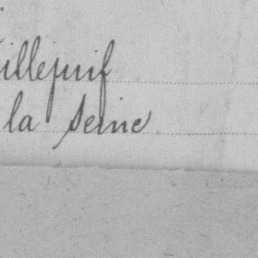 Villejuif
la Seine